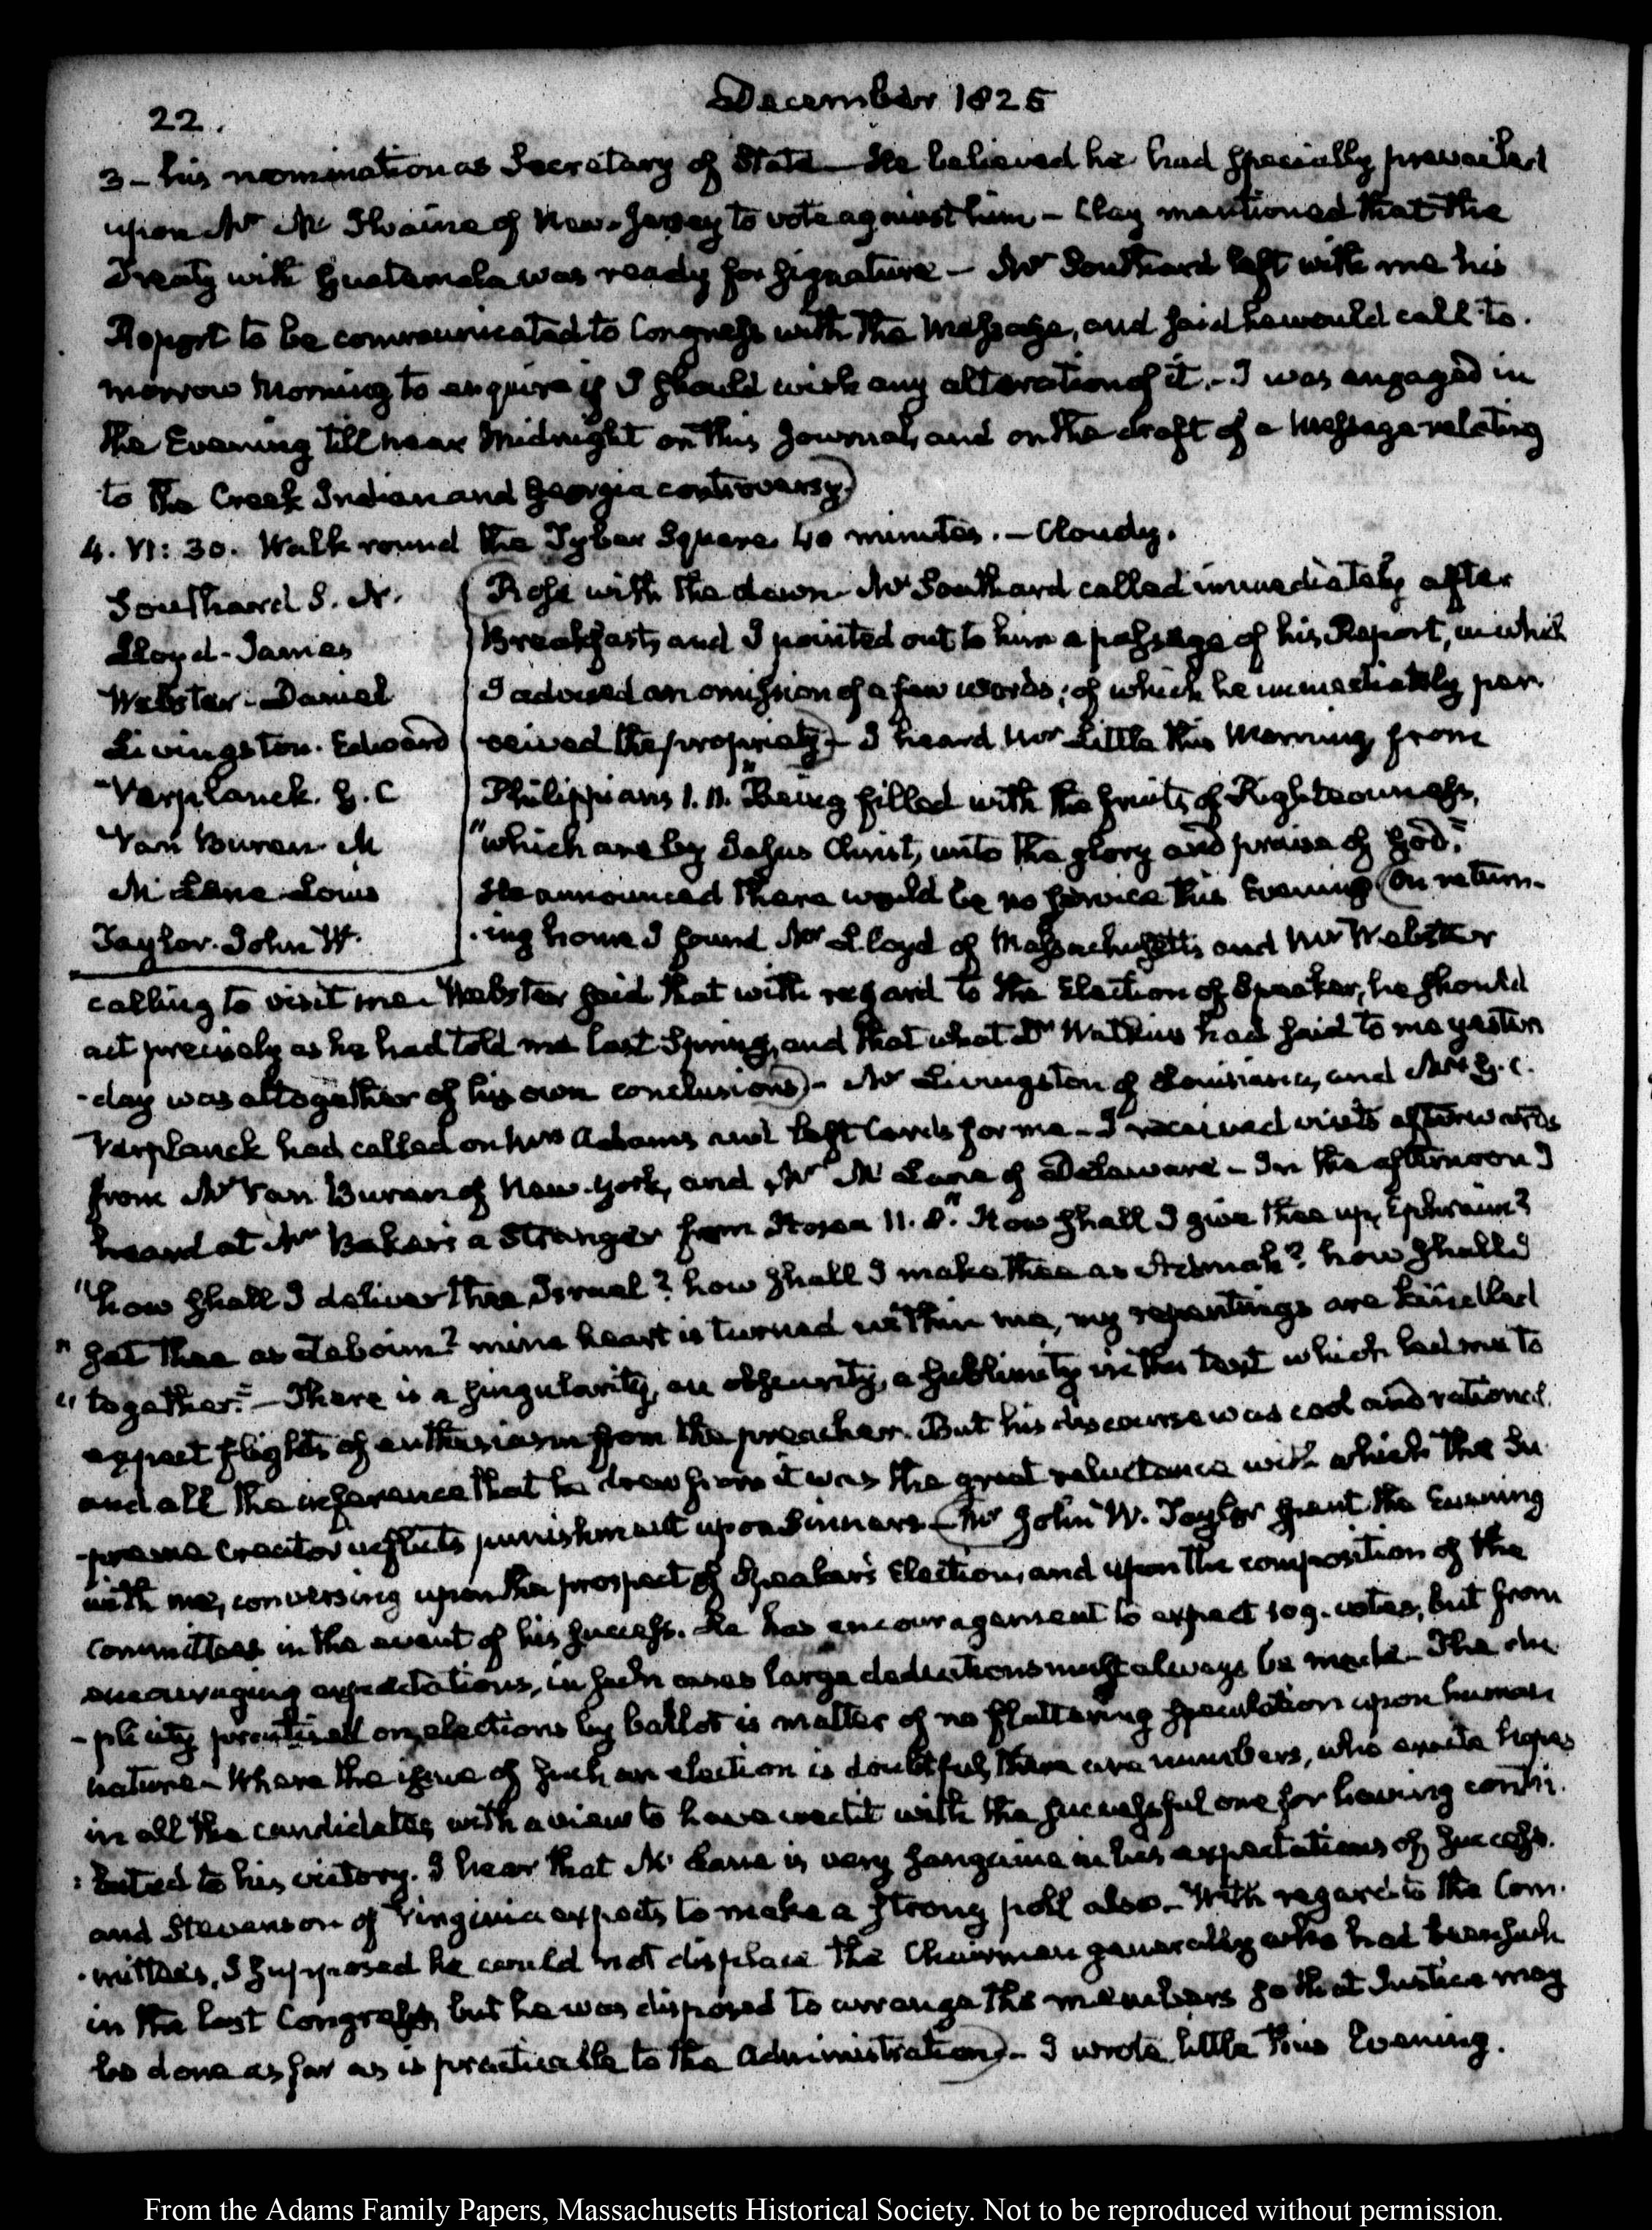 22.
December 1825
3 – his nomination as Secretary of State – He believed he had specially prevailed
upon Mr. Mc Ilvaine of New-Jersey to vote against him – Clay mentioned that the
Treaty with Guatemala was ready for signature – Mr Southard left with me his
Report to be communicated to Congress with the Message, and said he would call to-
morrow Morning to enquire if I should wish any alteration of it. – I was engaged in
the Evening till near Midnight on this Journal, and on the draft of a Message relating
to the Creek Indian and Georgia controversy.)
4. VI: 30. Walk round the Tyber Square 40 minutes. – Cloudy.
Southard S. L.
Lloyd - James
Webster - Daniel
Livingston. Edward
Verplanck. G. C
Van Buren M
Mc Lane Louis
Taylor. John W.
(Rose with the dawn. Mr Southard called immediately after
Breakfast, and I pointed out to him a passage of his Report, in which
I advised an omission of a few words; of which he immediately per-
ceived the propriety) – I heard Mr Little this Morning, from
Philippians 1. 11. "Being filled with the fruits of Righteousness,
"which are by Jesus Christ, unto the glory and praise of God."
He announced there would be no service this Evening (On return-
-ing home I found Mr Lloyd of Massachusetts and Mr Webster
calling to visit me. Webster said that with regard to the Election of Speaker, he should
act precisely as he had told me last Spring, and that what Dr Watkins had said to me yester
-day was altogether of his own conclusions) – Mr Livingston of Louisiana, and Mr G. C.
Verplanck had called on Mrs Adams and left Cards for me – I received visits afterwards
from Mr Van Buren of New-York, and Mr Mc Lane of Delaware – In the afternoon I
heard at Mr Baker's a Stranger from Hosea 11. 8. "How shall I give thee up, Ephraim?
"how shall I deliver thee, Israel? how shall I make thee as Admah? how shall I
"set thee as Zeboim? mine heart is turned within me, my repentings are kindled
"together." – There is a singularity, an obscurity, a sublimity in this text which led me to
expect flights of enthusiasm from the preacher. But his discourse was cool and rational.
and all the inference that he drew from it was the great reluctance with which the Su
-preme Creator inflicts punishment upon Sinners – (Mr John W. Taylor spent the Evening
with me, conversing upon the prospect of Speaker's Election, and upon the composition of the
Committees in the event of his success. He has encouragement to expect 109. votes, but from
encouraging expectations, in such cases large deductions must always be made – The du
-plicity practised on elections by ballot is matter of no flattering speculation upon human
nature – Where the issue of such an election is doubtful, there are numbers, who excite hopes
in all the candidates, with a view to have credit with the successful one for having contri-
-buted to his victory. I hear that Mc Lane is very sanguine in his expectations of success.
and Stevenson of Virginia expects to make a strong poll also. – With regard to the Com-
-mittees, I supposed he could not displace the Chairman generally who had been such
in the last Congress, but he was disposed to arrange the members so that Justice may
be done as far as is practicable to the Administration) – I wrote little this Evening.
From the Adams Family Papers, Massachusetts Historical Society. Not to be reproduced without permission.